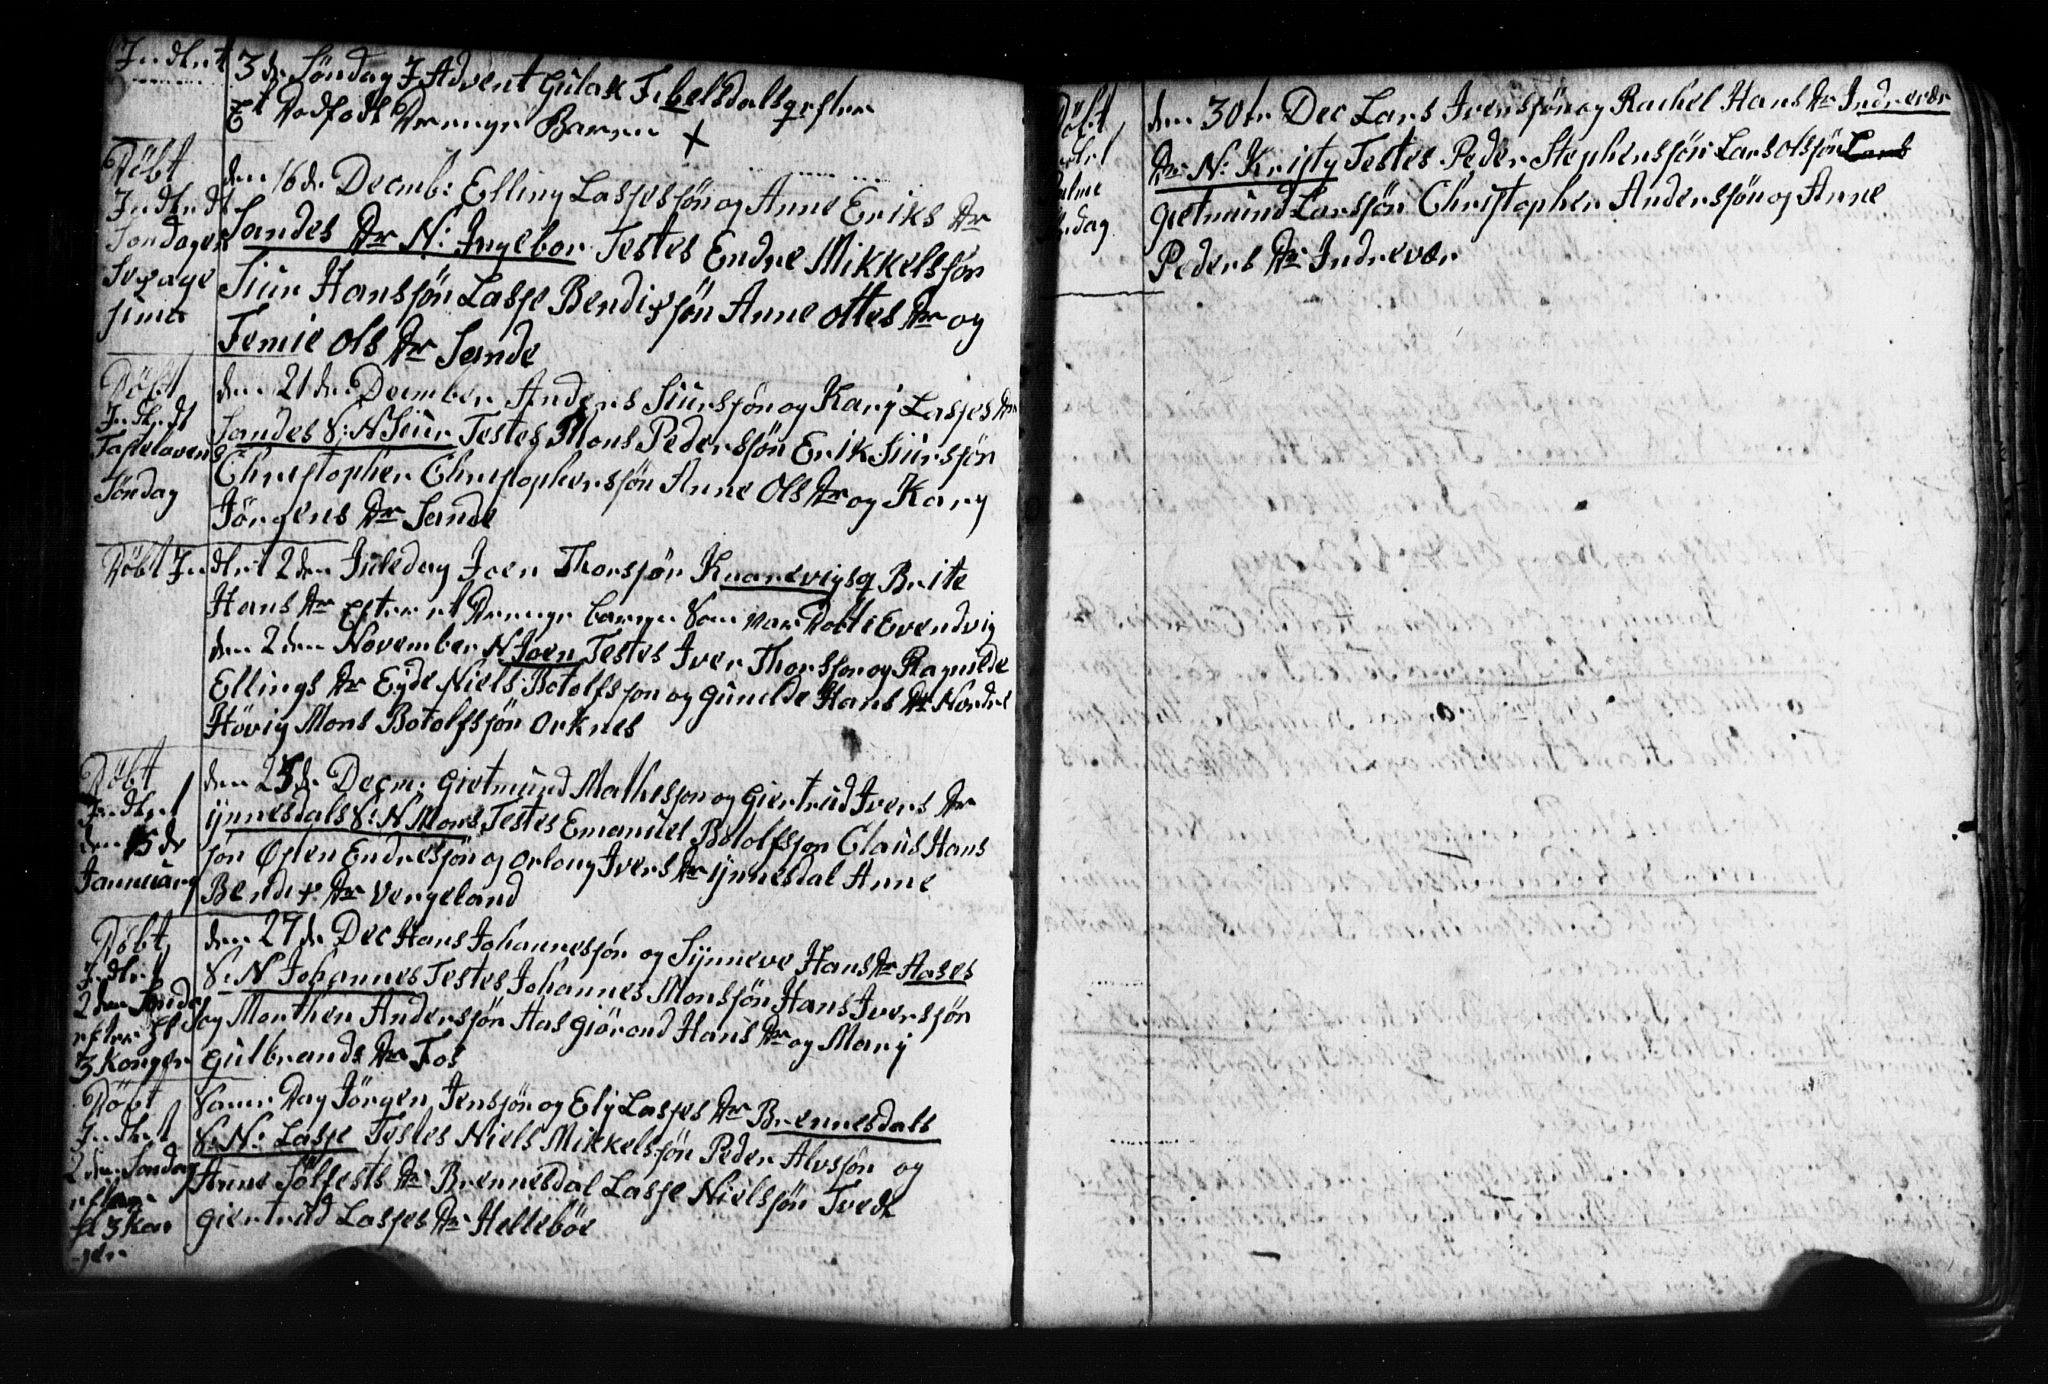 Indlet
3de Søndag I Advent Gulak Tibelsdals q efter
Et Dødfødt Drenge Barn
Døbt
Indledt
Søndagen
Sexage
sima
den 16de Decmb: Elling Lassesøn og Anne Eriks Dr
Sandes Dr N: Ingebor Testes Endre Mikkelssøn
Siur Hanssøn Lasse Bendixsøn Anne Ottes Dr og
Temie Ols Dr Sande
Døbt
Indledt
Fastelavens
Søndag
den 21de December Anders Siurssøn og Kary Lasses Dr
Sandes S: N Siur Testes Mons Pederssøn Erik Siurssøn
Christopher Christopherssøn Anne Ols Dr og Kary
Jørgens Dr Sande
Døbt Indlet 2den Juledag Joen Thorssøn Knarevigs q Brite
Hans Dr Efter et Drenge barn Som var Døbt i Evendvig
den 2den November N Joen Testes Iver Thorssøn og Ragnilde
Ellings Dr Eyde Niels Botolfssøn og Gunilde Hans Dr Nordre
Høvig Mons Botolfssøn Orknes
Døbt
Indlet
den 15de
Januuary
den 25de Decm: Gietmund Mathissøn og Giertrud Ivers Dr
Ynnesdals S: N Mons Testes Emanuel Botolfssøn Claus Hans
søn Østen Endressøn og Orloug Ivers Dr Ynnesdal Anne
Bendix Dr Vergeland
Døbt
Indlet
2den Søndag
efter H
3 Konger
den 27de Dec Hans Johannessøn og Synneve Hans Dr Aases
S: N Johannes Testes Johannes Monssøn Hans Iverssøn
og Morthen Anderssøn Aas Giørond Hans Dr og Mary
Gulbrands Dr Fos
Døbt
Indlet
2den Søndag
efter
H 3 Kon
ger
Samme Dag Jørgen Jenssøn og Ely Lasses Dr Brennesdals
S: N: Lasse Testes Niels Mikkelssøn Peder Alvssøn og
Anne Sølfests Dr Brennesdal Lasse Nielssøn Tvedt
Giertrud Lasses Dr Hellebøe
Døbt
Indlet
Palme
Søndag
den 30te Dec Lars Iverssøn og Rachel Hans Dr Indrevær
Dr N: Kristy Testes Peder Stephenssøn Lars Olssøn Lars
Gietmund Larssøn Christopher Anderssøn og Anne
Peders Dr Indrevær